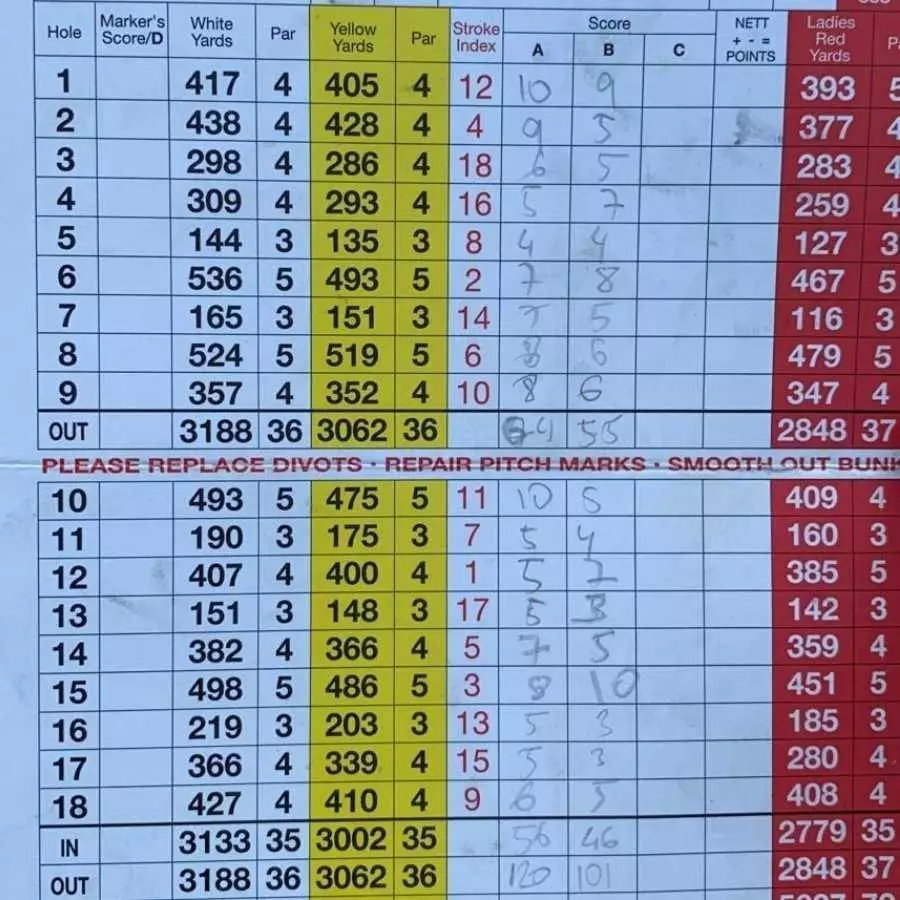 Hole Marker's Score/D White Yards Par Yellow Yards Par Stroke Index Score A B C NETT + - = POINTS Ladies Red Yards
1 417 4 405 4 12 10 9 393 5
2 438 4 428 4 4 9 5 377 4
3 298 4 286 4 18 6 5 283 4
4 309 4 293 4 16 5 7 259 4
5 144 3 135 3 8 4 4 127 3
6 536 5 493 5 2 7 8 467 5
7 165 3 151 3 14 5 116 3
8 524 5 519 5 6 8 6 479 5
9 357 4 352 4 10 8 6 347 4
OUT 3188 36 3062 36 64 55 2848 37
PLEASE REPLACE DIVOTS · REPAIR PITCH MARKS · SMOOTH OUT
10 493 5 475 5 11 10 6 409 4
11 190 3 175 3 7 5 4 160 3
12 407 4 400 4 1 5 7 385 5
13 151 3 148 3 17 5 3 142 3
14 382 4 366 4 5 7 5 359 4
15 498 5 486 5 3 8 10 451 5
16 219 3 203 3 13 5 3 185 3
17 366 4 339 4 15 5 3 280 4
18 427 4 410 4 9 6 5 408 4
IN 3133 35 3002 35 56 46 2779 35
OUT 3188 36 3062 36 120 101 2848 37